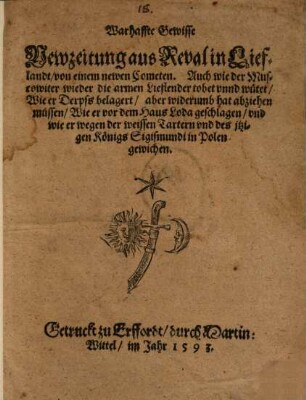 18.
Warhaffte Gewisse
Newzeitung aus Reval in Lief-
landt/ von einem newen Cometen. Auch wie der Mus-
cowiter wieder die armen Lieflender tobet vnnd wütet/
Wie er Derpts belagert/ aber widerumb hat abziehen
müssen/ Wie er vor dem Haus Loda geschlagen/ vnd
wie er wegen der weissen Tartern vnd des jtzi-
gen Königs Sigismundi in Polen
gewichen.
Getruckt zu Erffordt/ durch Martin:
Wittel/ im Jahr 1593.